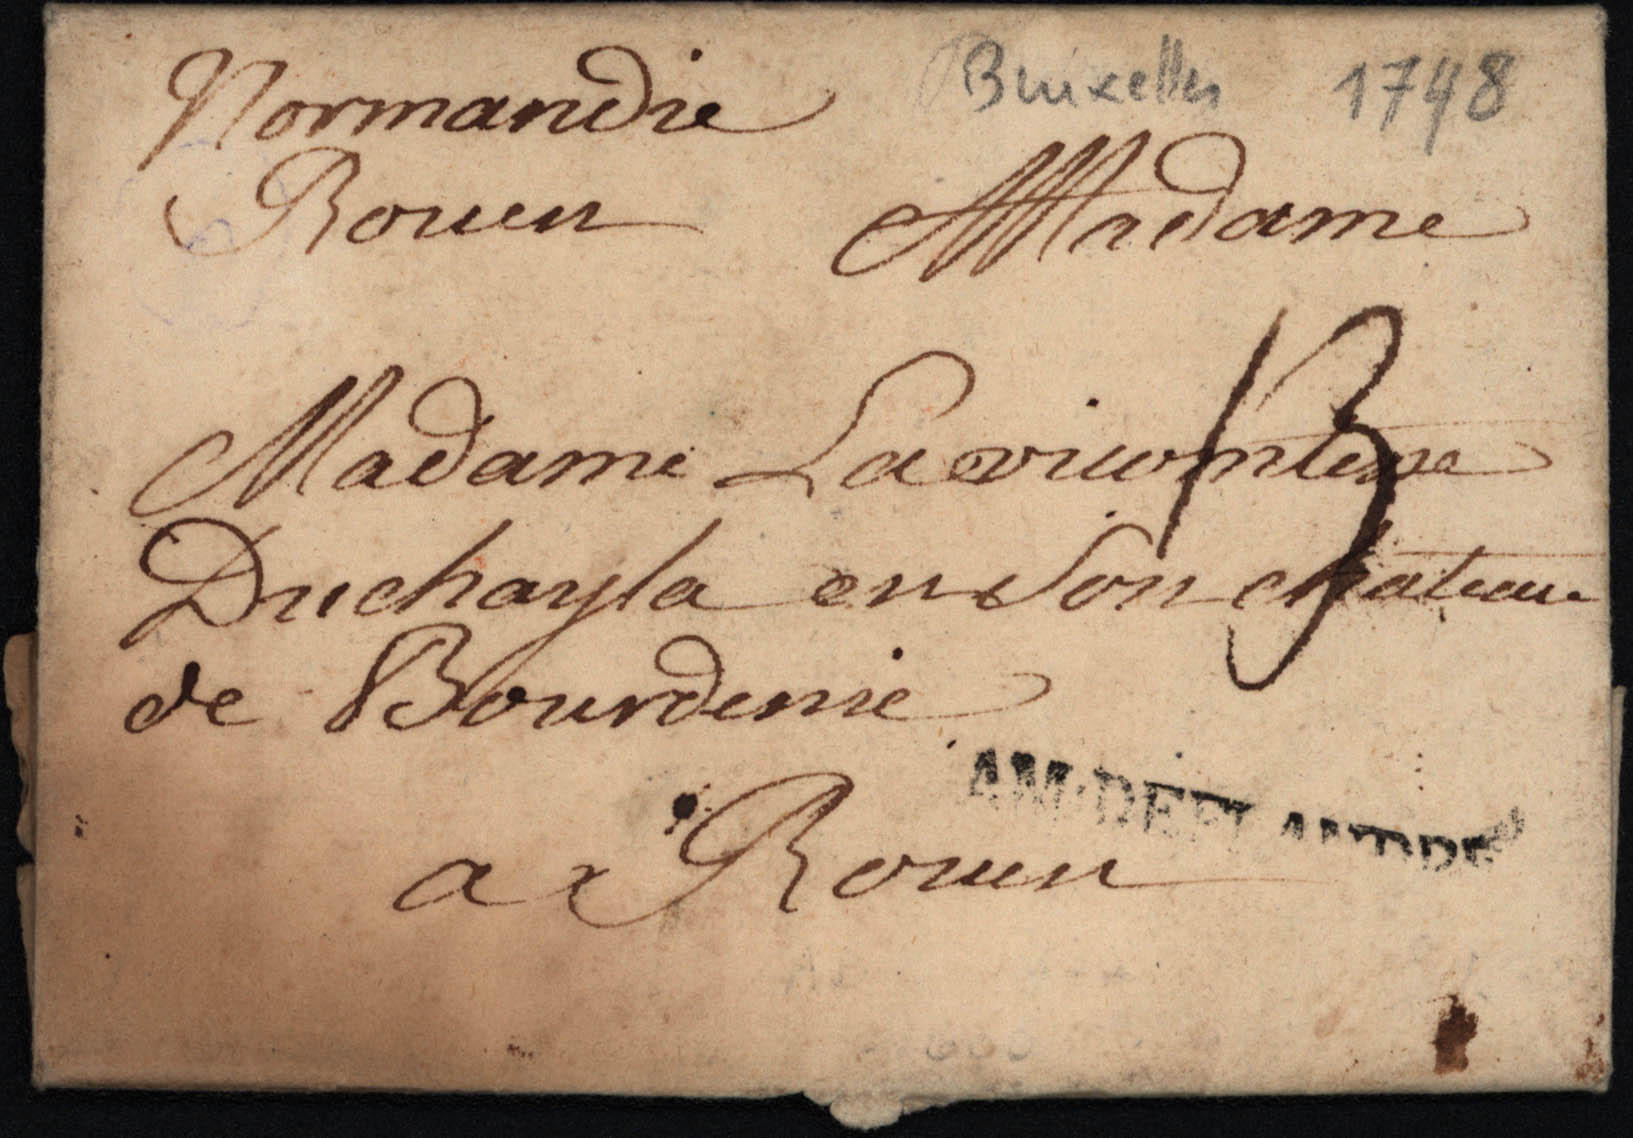 Bruxelles 1748
Normandie
Rouen Madame
13
Madame La vicomtesse
Duchayla en Son chateau
de Bourdenie
AM·DEFLANDRE
a Rouen